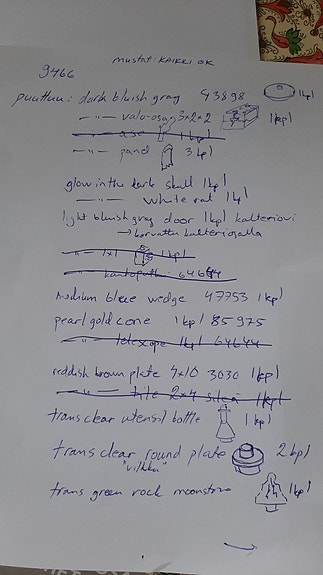 mustat: KAIKKI OK
9466
puuttuu: dark bluish gray 43898 1kpl
-"- valo-osa 3x2x2 1kpl
-"- ase 1kpl
-"- panel 3kpl
glow in the dark skull 1kpl
-"- white rat 1kpl
light bluish gray door 1kpl kalteriovi
→ korvattu kalteriosalla
-"- 1x1 1kpl
-"- 64644
medium blue wedge 47753 1kpl
pearl gold cone 1kpl 85975
-"- telescope 1kpl 64644
reddish brown plate 4x10 3030 1kpl
-"- tile 2x4 1kpl
trans clear utensil bottle 1kpl
trans clear round plate 2kpl
"vilkku"
trans green rock moonstone 1kpl
→